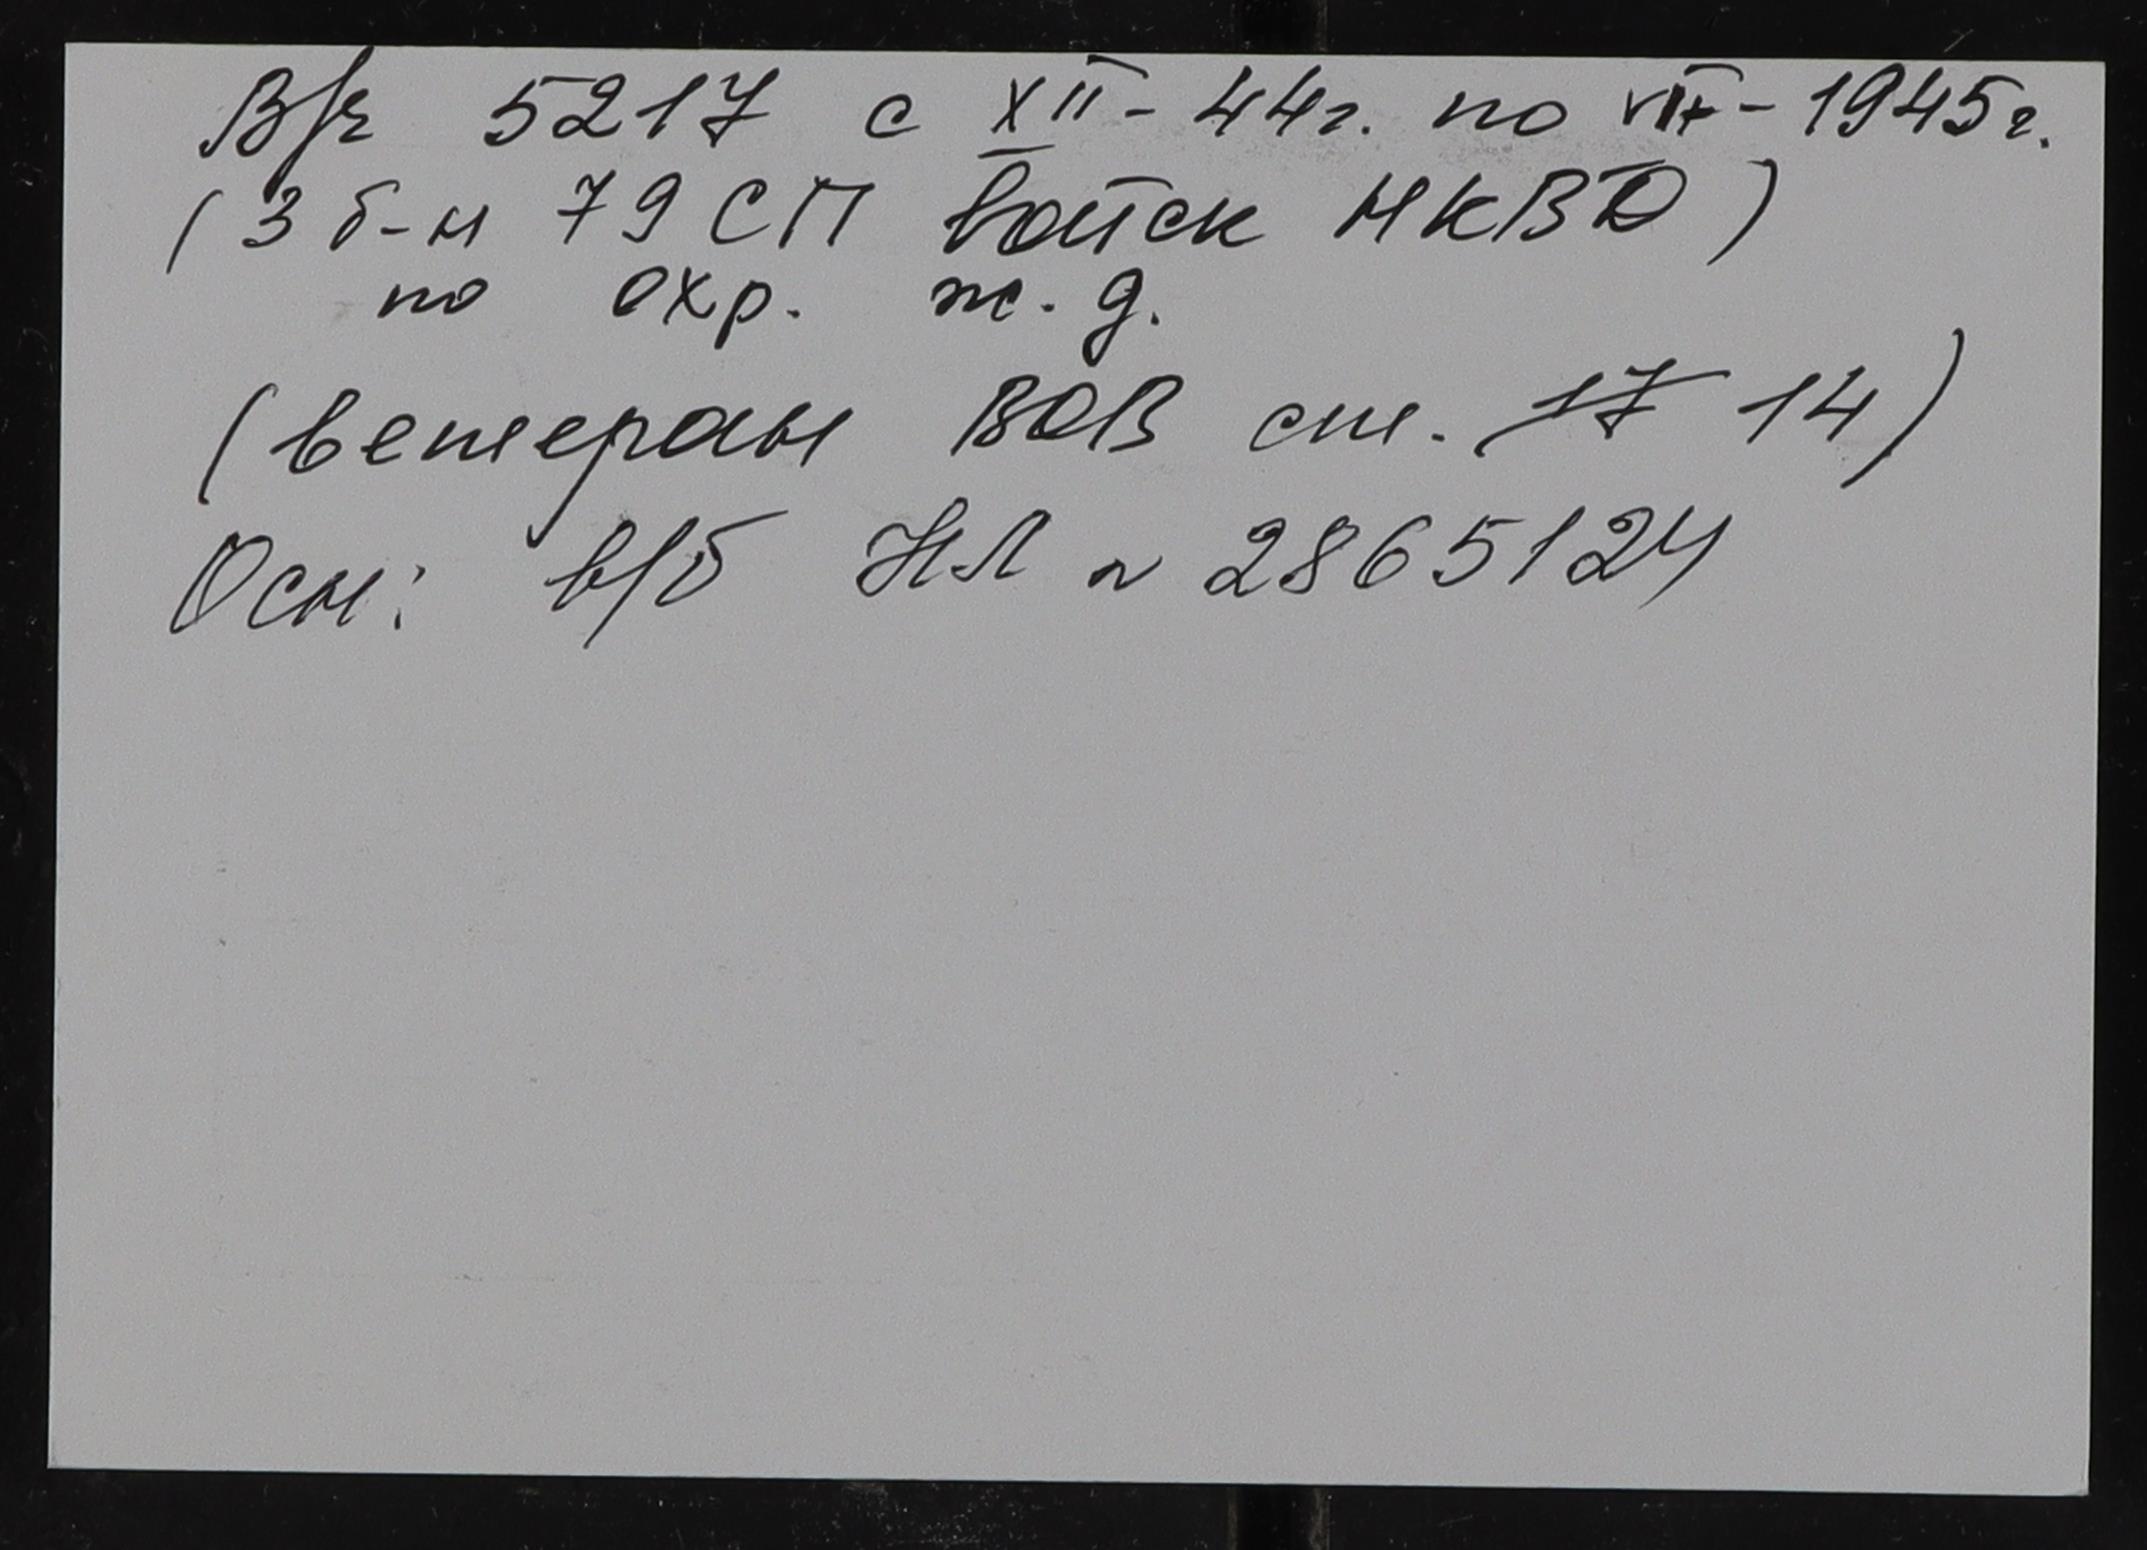 В/ч 5217 с XII-44г. по VII-1945г.
(3 б-н 79 СП войск НКВД)
по охр. ж.д.
(ветеран ВОВ ст. 17 14)
Осн: в/б НЛ № 2865124